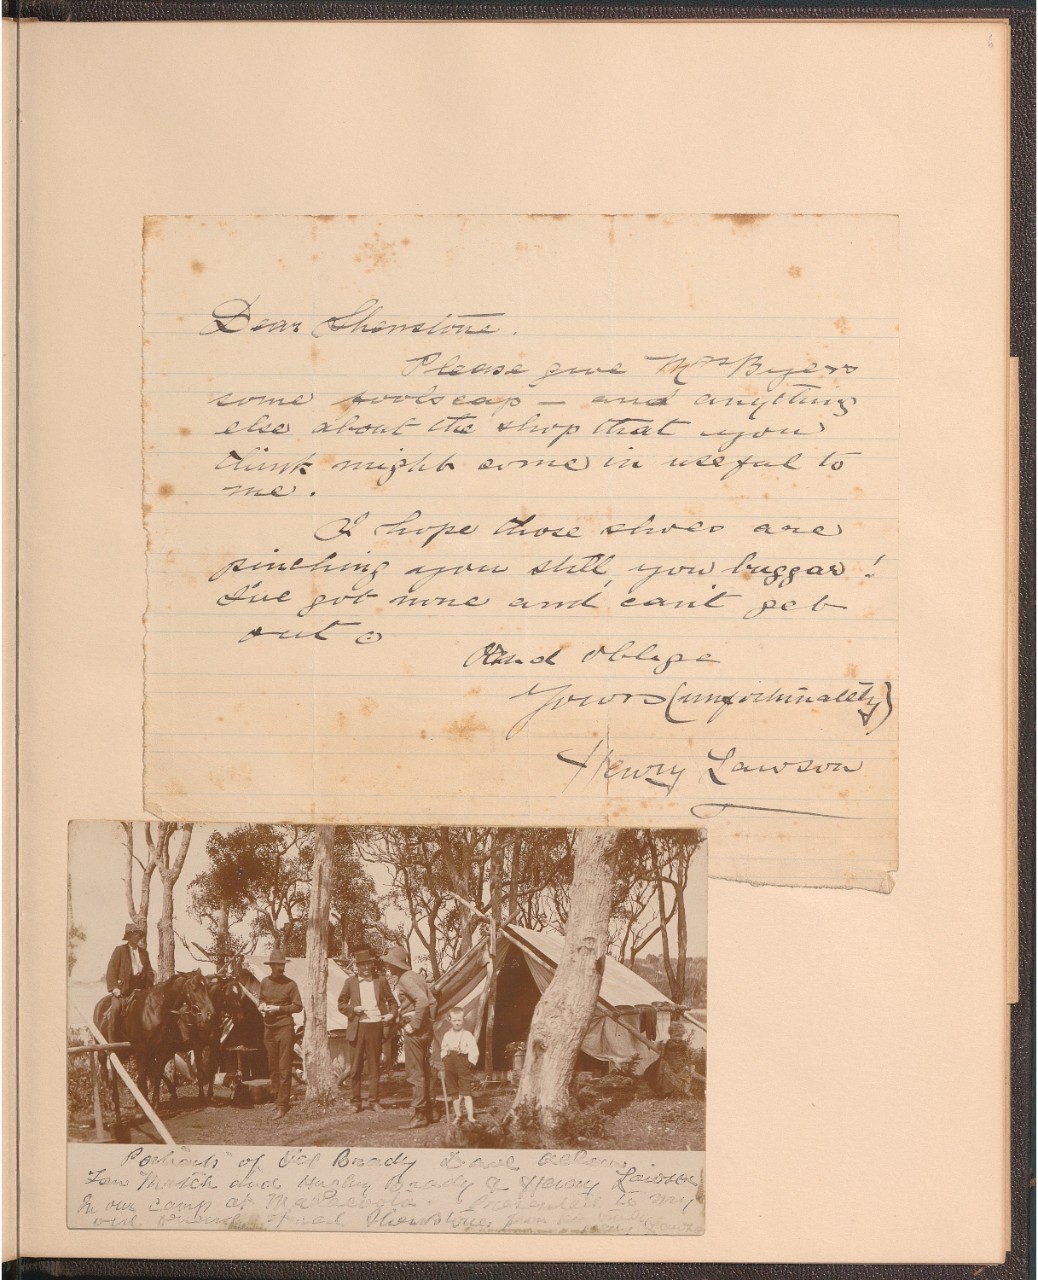 6
Dear Shenstone.
Please give Mrs Byers
some foolscap – and anything
else about the shop that you
think might come in useful to
me.
I hope those shoes are
pinching you still, you buggar!
I've got none and can't get
out
And oblige
Yours (unfortunately)
Henry Lawson
Portraits of Ted Brady Dave
Tom Match and Hughy Brady & Henry Lawson
In our camp at Mallacoota Presented to my
old friend Fred Shenstone from his